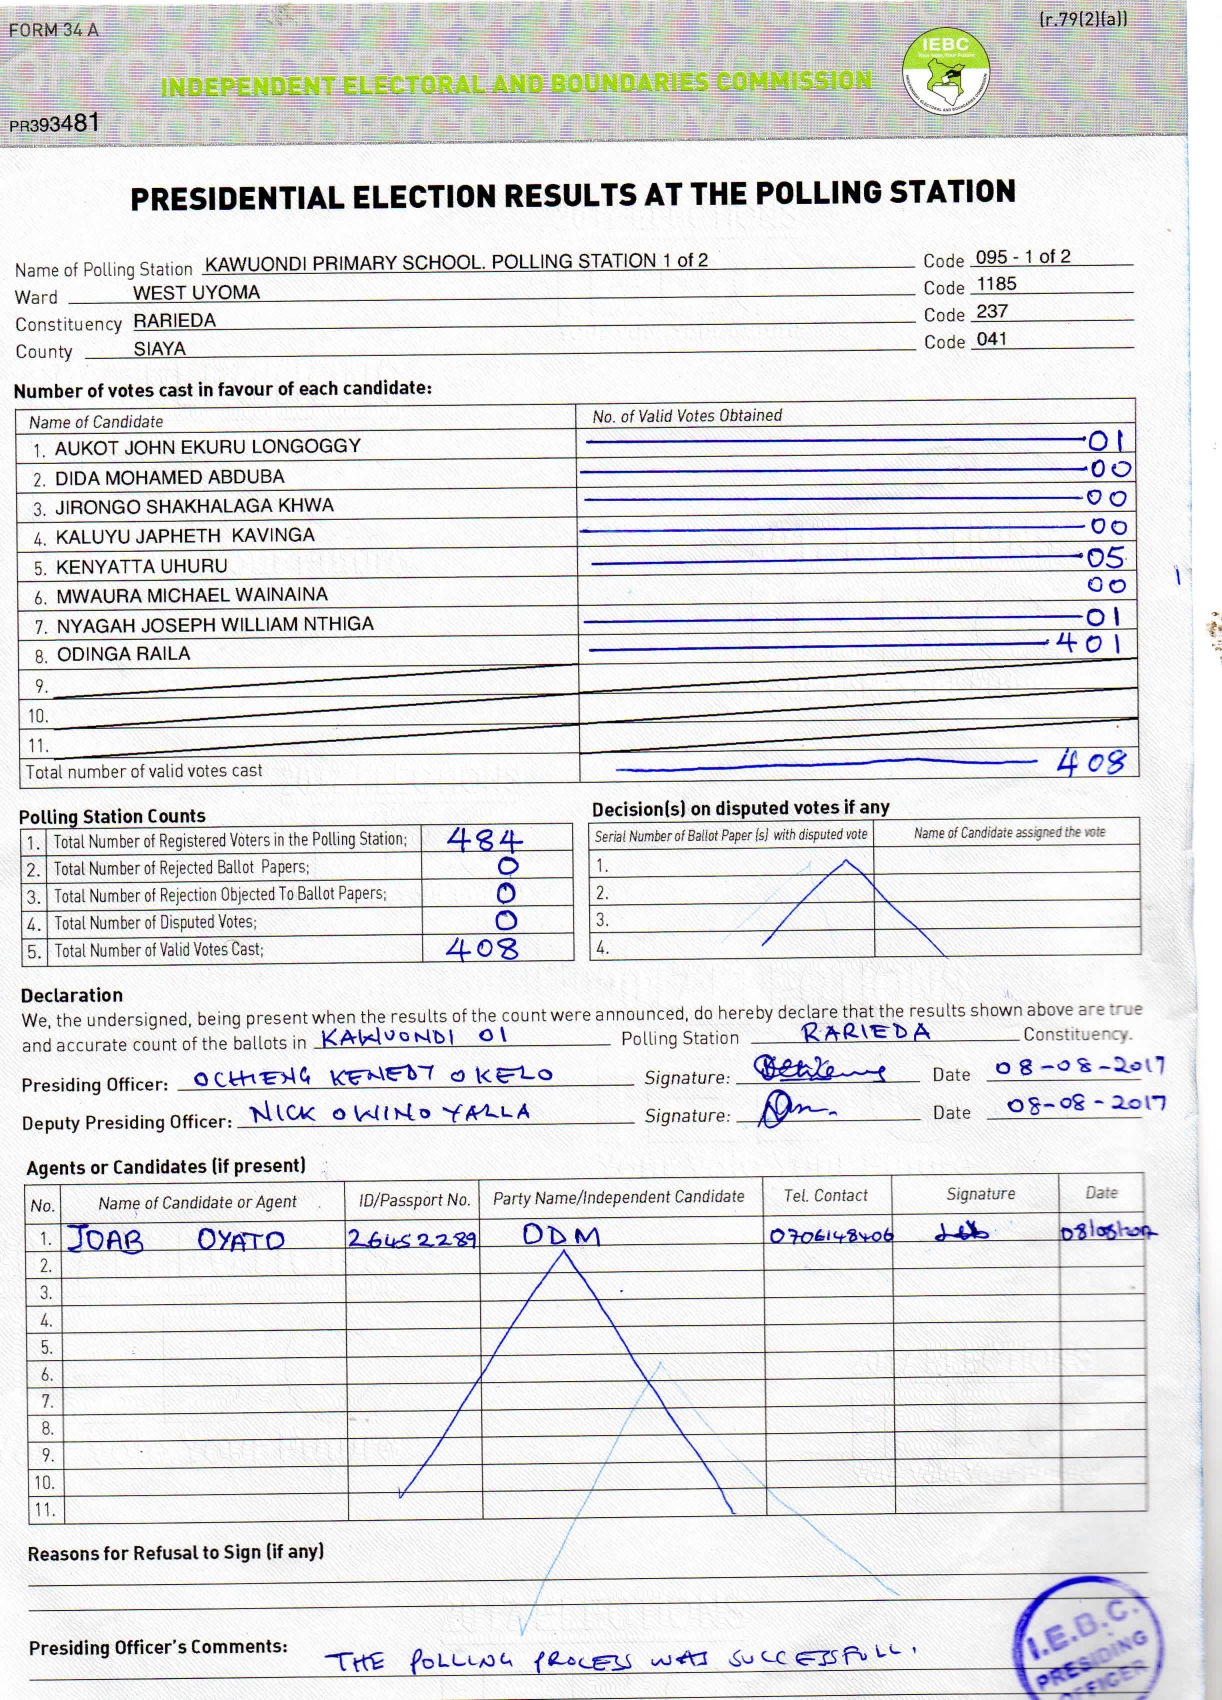 FORM 34 A
(r.79(2)(a))
IEBC
INDEPENDENT ELECTORAL AND BOUNDARIES COMMISSION
PR393481
PRESIDENTIAL ELECTION RESULTS AT THE POLLING STATION
Name of Polling Station KAWUONDI PRIMARY SCHOOL. POLLING STATION 1 of 2 Code 095 - 1 of 2
Ward WEST UYOMA Code 1185
Constituency RARIEDA Code 237
County SIAYA Code 041
Number of votes cast in favour of each candidate:
Name of Candidate No. of Valid Votes Obtained
1. AUKOT JOHN EKURU LONGOGGY 01
2. DIDA MOHAMED ABDUBA 00
3. JIRONGO SHAKHALAGA KHWA 00
4. KALUYU JAPHETH KAVINGA 00
5. KENYATTA UHURU 05
6. MWAURA MICHAEL WAINAINA 00
7. NYAGAH JOSEPH WILLIAM NTHIGA 01
8. ODINGA RAILA 401
9.
10.
11.
Total number of valid votes cast 408
Polling Station Counts
1. Total Number of Registered Voters in the Polling Station; 484
2. Total Number of Rejected Ballot Papers; 0
3. Total Number of Rejection Objected To Ballot Papers; 0
4. Total Number of Disputed Votes; 0
5. Total Number of Valid Votes Cast; 408
Decision(s) on disputed votes if any
Serial Number of Ballot Paper (s) with disputed vote Name of Candidate assigned the vote
1.
2.
3.
4.
Declaration
We, the undersigned, being present when the results of the count were announced, do hereby declare that the results shown above are true
and accurate count of the ballots in KAWUONDI 01 Polling Station RARIEDA Constituency.
Presiding Officer: OCHIENG KENEDY OKELO Signature: Date 08-08-2017
Deputy Presiding Officer: NICK OWINO YALLA Signature: Date 08-08-2017
Agents or Candidates (if present)
No. Name of Candidate or Agent ID/Passport No. Party Name/Independent Candidate Tel. Contact Signature Date
1. JOAB OYATO 26452289 ODM 0706148406 08/08/2017
2.
3.
4.
5.
6.
7.
8.
9.
10.
11.
Reasons for Refusal to Sign (if any)
Presiding Officer's Comments: THE POLLING PROCESS WAS SUCCESSFULL.
I.E.B.C.
PRESIDING
OFFICER